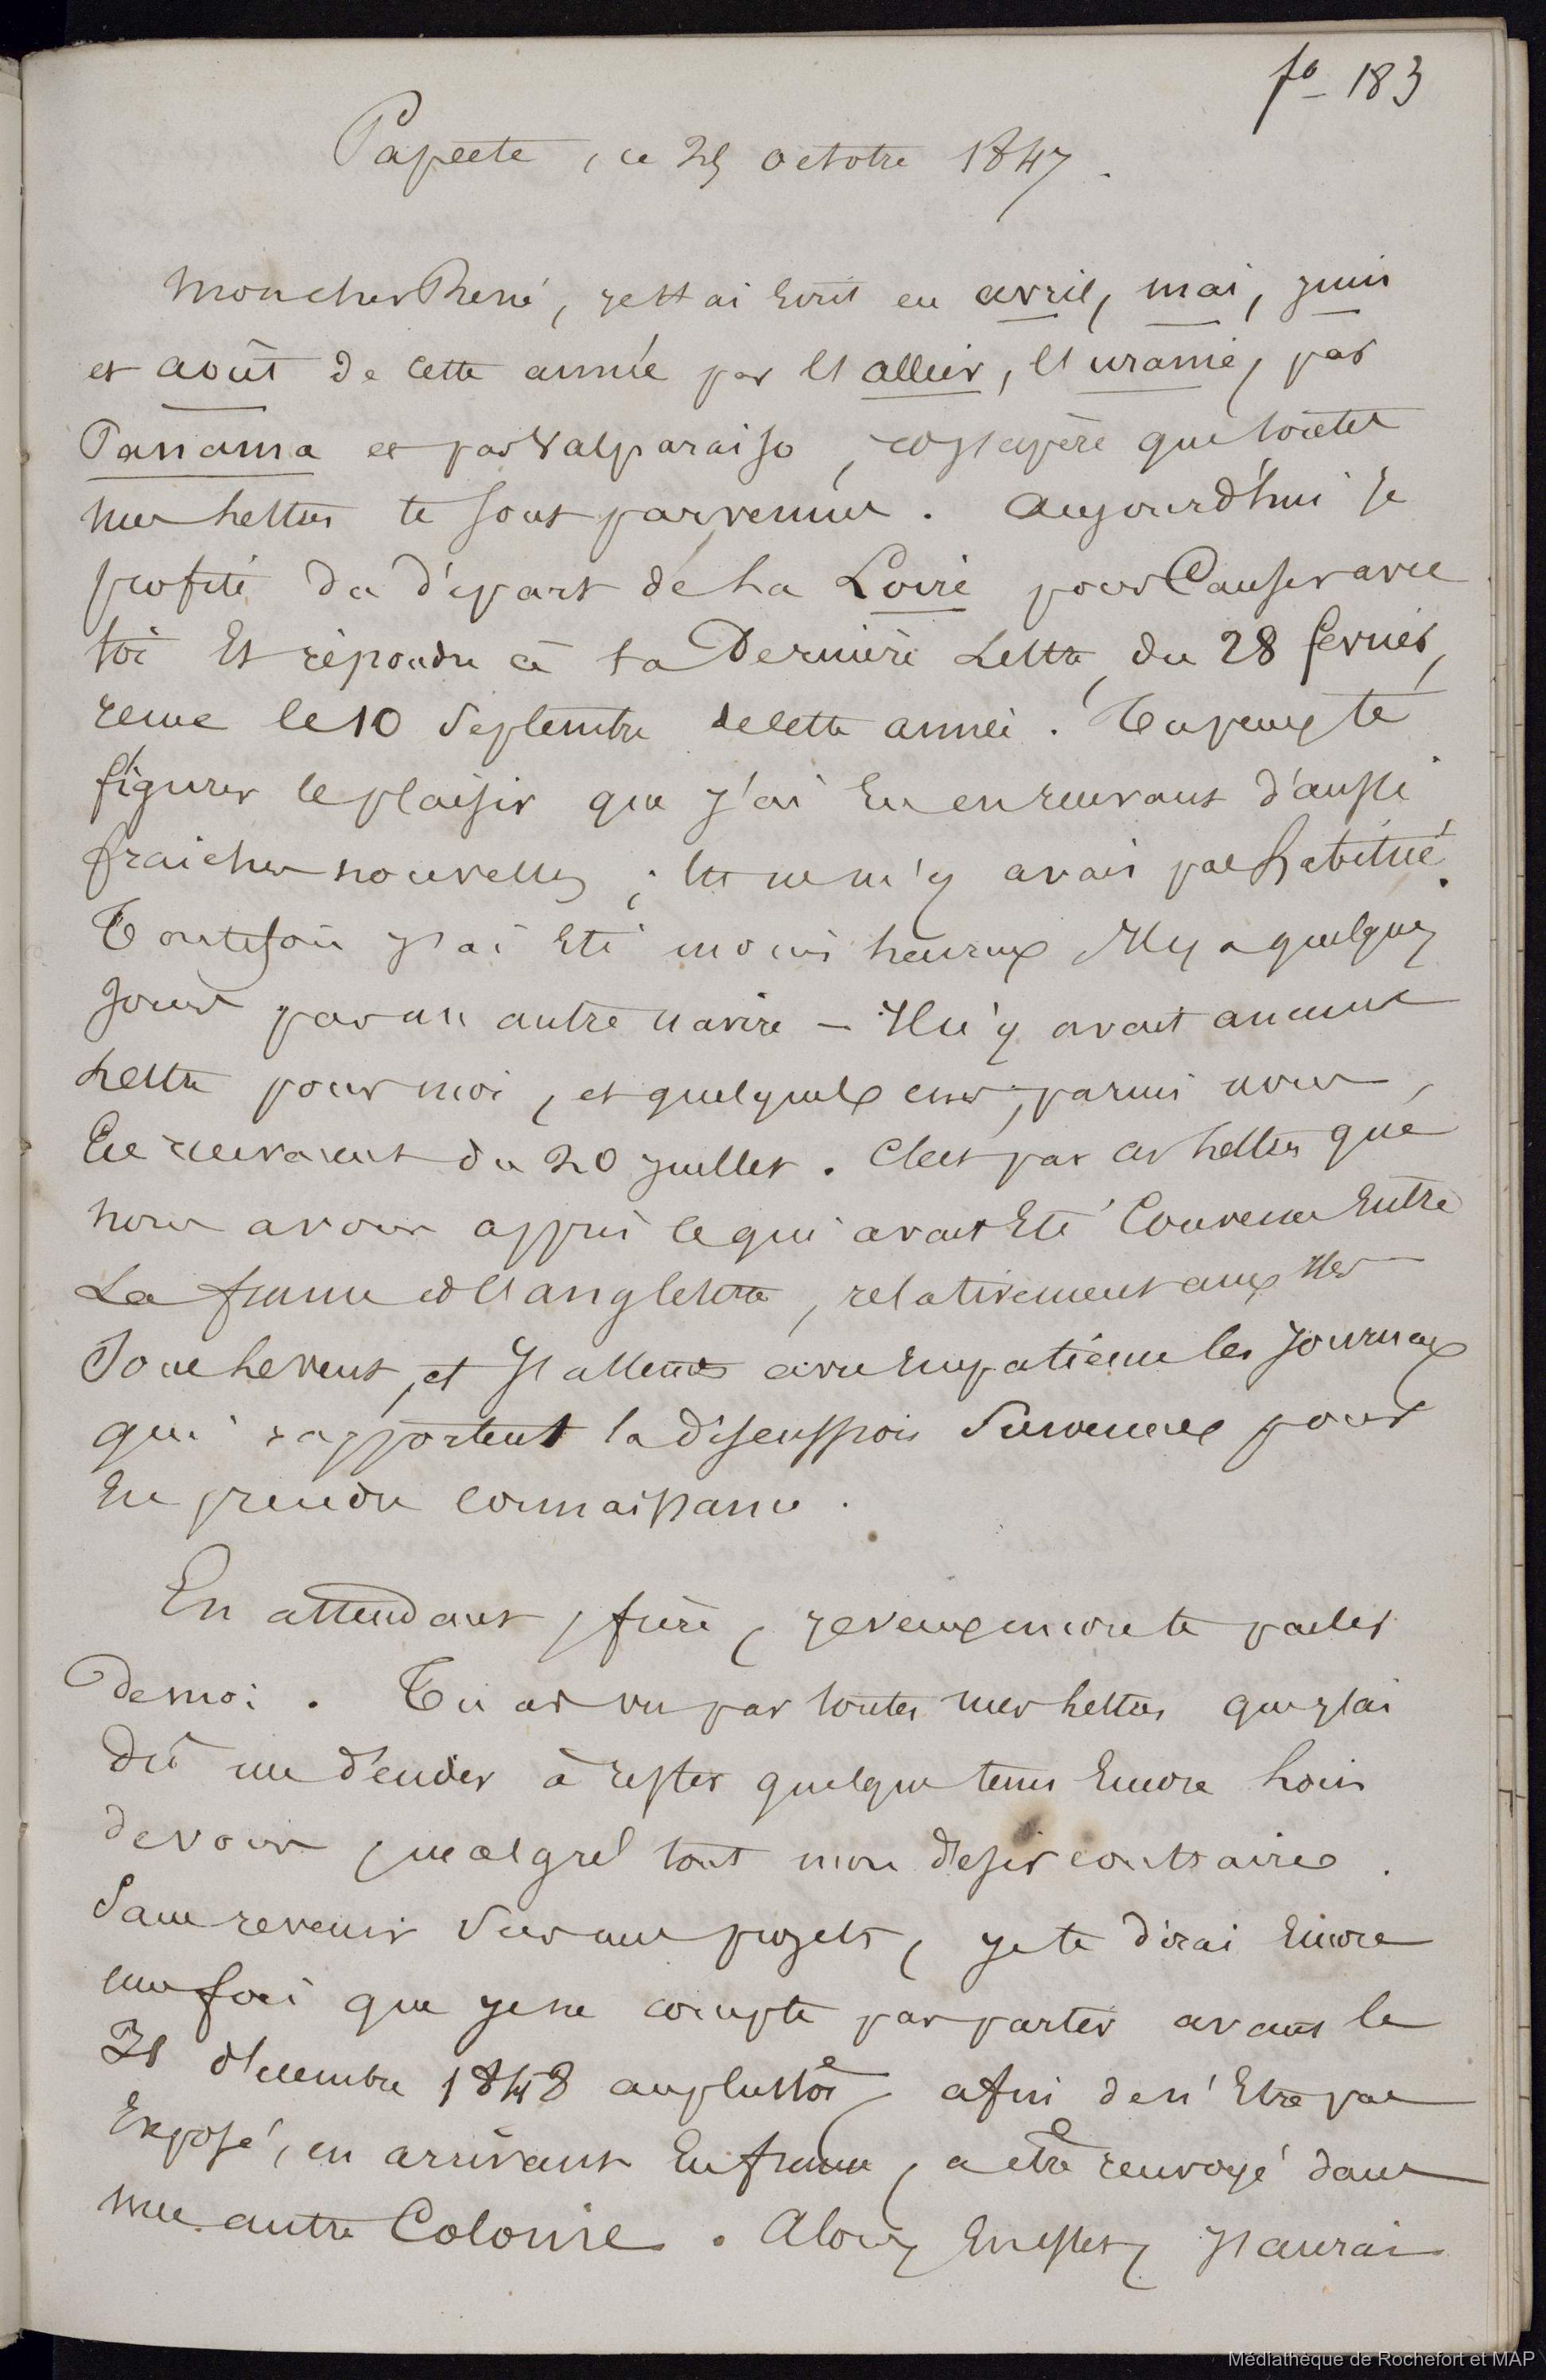 fo 183
Papeete, ce 25 octobre 1847.
Mon cher René, je t'ai écrit en avril, mai, juin
et août de cette année par l'allier, l'uranie, par
Panama et par Valparaiso, et j'espère que toutes
mes lettres te sont parvenues. Aujourd'hui je
profite du départ de la Loire pour Causer avec
toi Et répondre à ta Dernière Lettre du 28 fevrier,
recue le 10 Septembre de cette année. Tu peux te
figurer le plaisir que j'ai Eu en recevant d'aussi
fraiches nouvelles; tu ne m'y avais pas habitué.
Toutefois j'ai Eté moins heureux Il y a quelques
jours par un autre navire – Il n'y avait aucune
Lettre pour moi, et quelques uns, parmi nous,
En recevaient du 20 juillet. C'est par ces Lettres que
nous avons appris ce qui avait Eté Convenu Entre
La france et l'angleterre, relativement aux Iles
Sous le vent, et j'attends avec Impatience les journaux
qui rapportent la discussion Survenue pour
En prendre connaissance.
En attendant, frère, je veux encore te parler
De moi. Tu as vu par toutes mes Lettres que j'ai
Dû me décider à rester quelque tems Encore Loin
de vous, malgré tout mon désir contraire.
Sans revenir Sur mes projets, je te dirai Encore
une fois que je ne compte pas partir avant le
31 décembre 1848 au plus tôt, afin de n'Etre pas
Exposé, en arrivant En france, a être renvoyé dans
une autre Colonie. Alors, En effet, j'aurai
Médiathèque de Rochefort et MAP